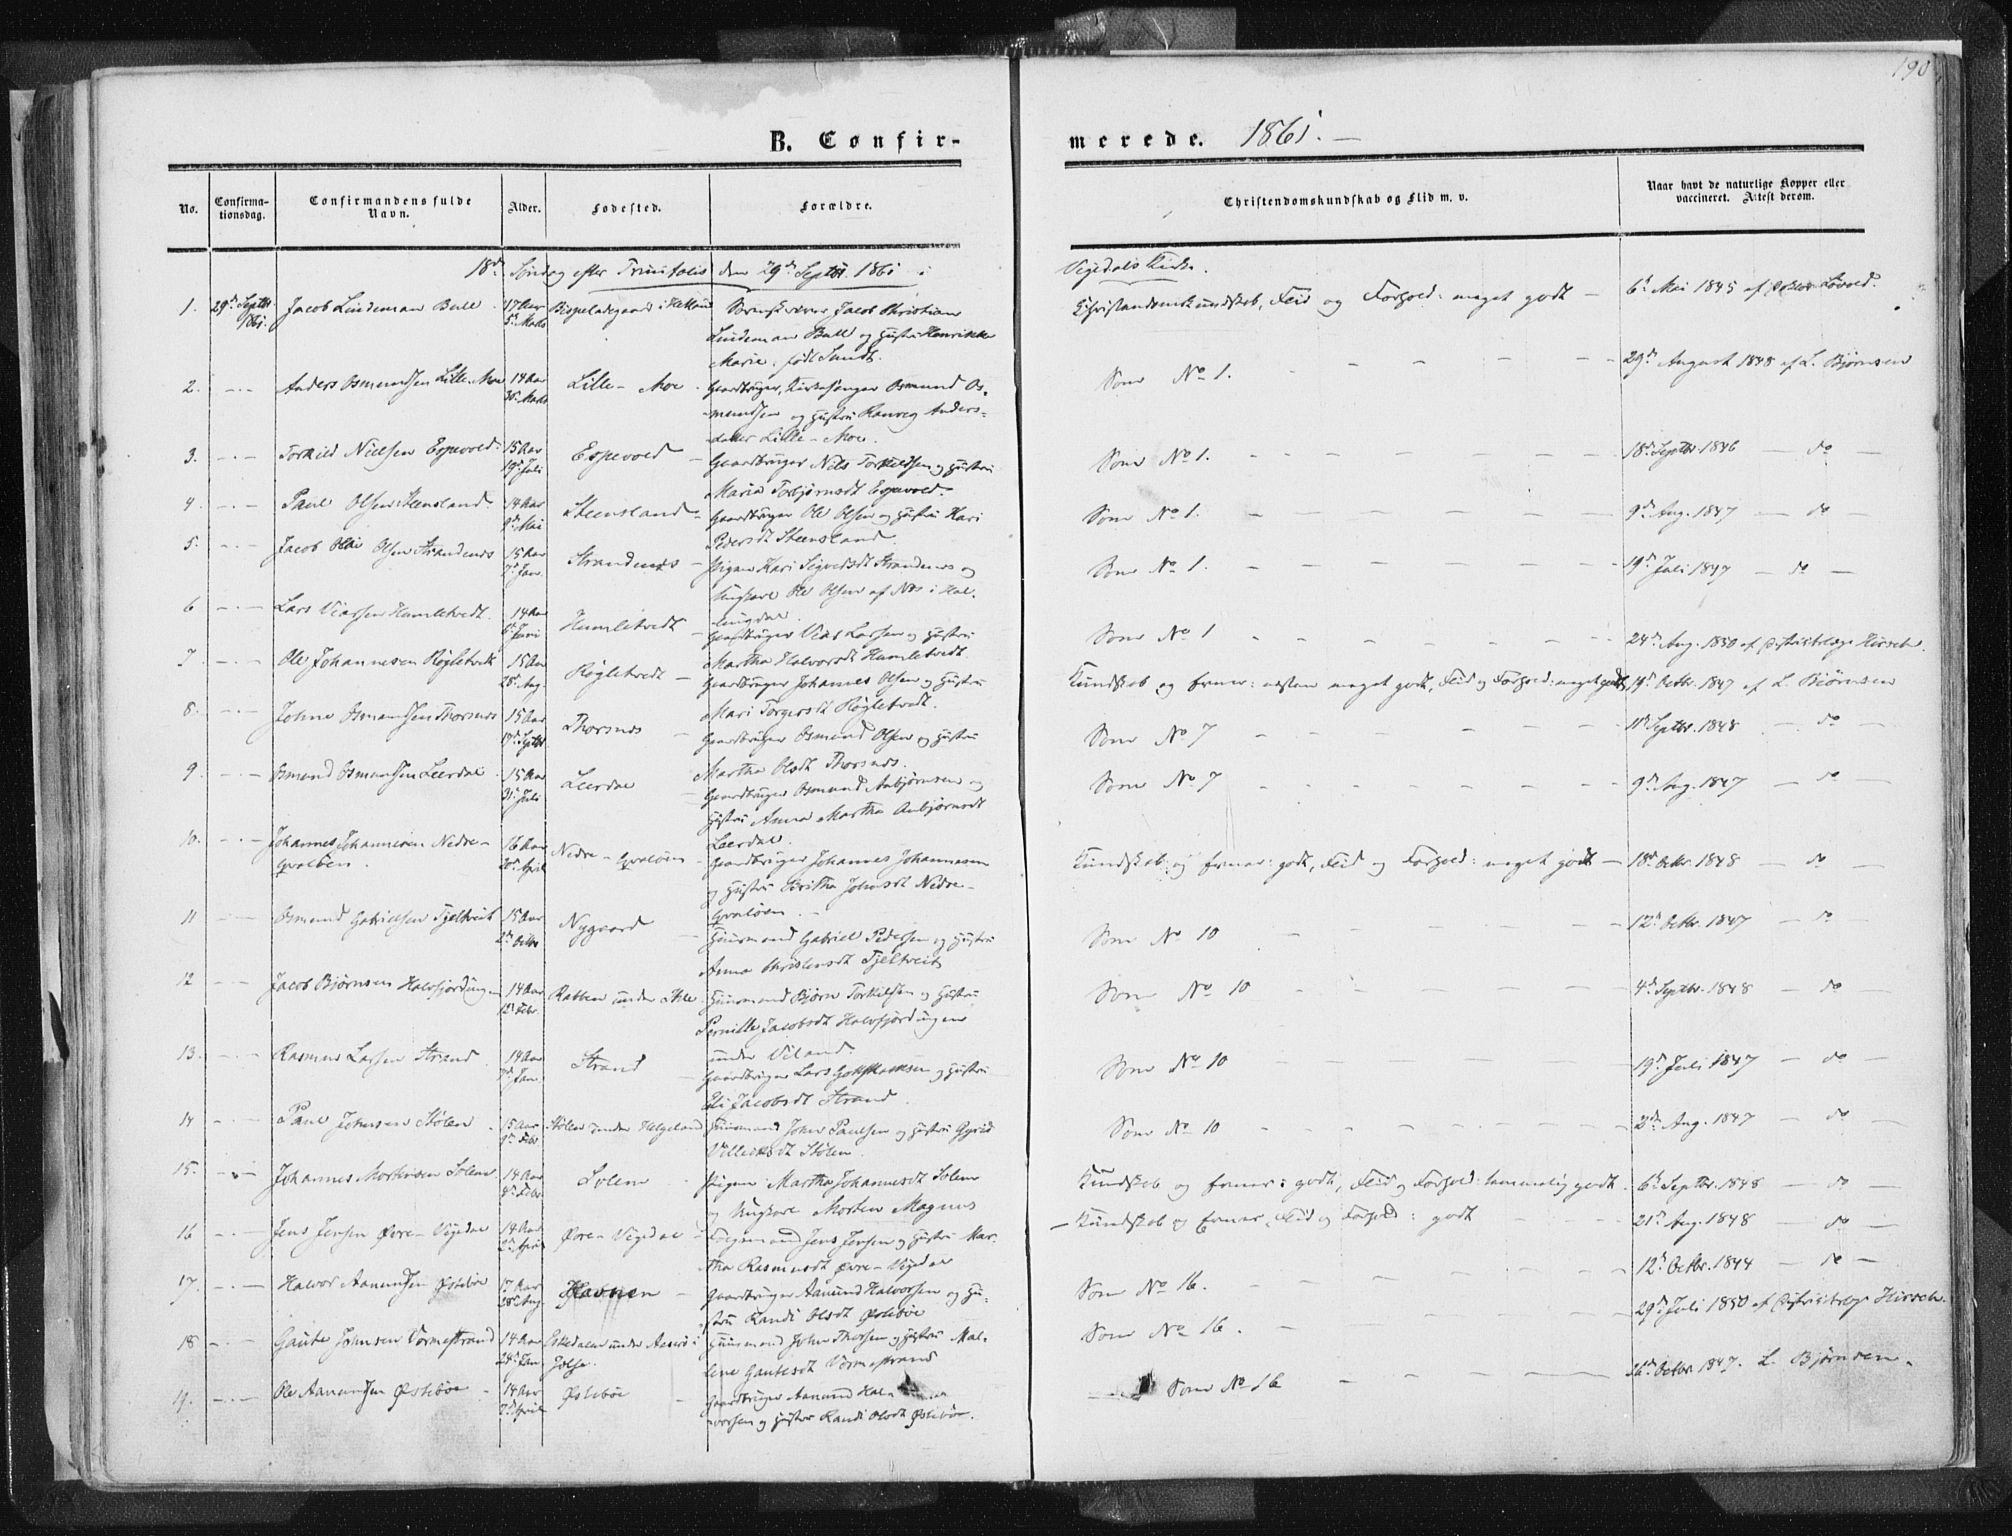 190
B. Confir-
merede. 1861. —
No.
Confirma-
tionsdag.
Confirmandens fulde
Navn.
Alder.
Fødested.
Forældre.
Christendomskundskab og Flid m. v.
Naar havt de naturlige Kopper eller
vaccineret. Attest derom.
18de Søndag efter Trinitatis den 29de Septbr 1861 i
Kirke.
1. 29de Septbr 1861. Jacob Lindeman Bull 17 Aar Jacob Christian
Lindeman Bull og Hustru Henrikke
Marie, født Sundt.
Christendomskundskab, Flid og Forhold: meget godt — 6te Mai 1845 af
2. — Anders Osmundsen Lille-Moe 14 Aar Lille-Moe. Gaardbruger, Kirkesanger Osmund Os-
mundsen og Hustru Ranveg Anders-
datter Lille-Moe.
Som No 1. 29de August 1848 af L. Bjørnsen
3. — Torkild Nielsen Espevold 15 Aar 19de Juli Espevold — Gaardbruger Nils Torkildsen og Hustru
Maria Torbjørnsdt Espevold.
Som No 1. 18de Septbr 1846 — do —
4. — Paul Olsen Steensland 14 Aar Mai Steensland — Gaardbruger Ole Olsen og Hustru Kari
Pedersdt Steensland.
Som No 1. 9de Aug. 1847 — do —
5. — Jacob Olai Olsen Strandenæs 15 Aar 7de Jan. Strandenæs — Pigen Kari Sigvedsdt Strandenæs og
Ungkarl Ole Olsen af Næs i Hal-
lingdal.
Som No 1. 19de Juli 1847 — do —
6 — Lars Vearsen Humletvedt 14 Aar Humletvedt — Gaardbruger Larsen og Hustru
Martha Halvorsdt Humletvedt.
Som No 1 24de Aug. 1850 af Districtslæge Hirsch.
7. — Ole Johannesen Røgletvedt 15 Aar 28de Aug. Røgletvedt — Gaardbruger Johannes Olsen og Hustru
Mari Torgersdt Røgletvedt.
Kundskab og : næsten meget godt, Flid og Forhold: meget godt 19de Octbr. 1847 af L. Bjørnsen
8. — Johne Osmundsen Thorsnæs 15 Aar Septbr Thorsnæs — Gaardbruger Osmund Olsen og Hustru
Martha Olsdt Thorsnæs.
Som No 7 11te Septbr. 1848 — do —
9. — Osmund Osmundsen Leerdal 15 Aar 31te Juli Leerdal — Gaardbruger Osmund Anbjørnsen og
Hustru Anna Martha Anbjørnsdt
Leerdal.
Som No 7 9de Aug. 1847 — do —
10. — Johannes Johannesen Nedre-
Qvaløen. 16 Aar 20de April Nedre-Qvaløen — Gaardbruger Johannes Johannesen
og Hustru Britha Johnsdt Nedre-
Qvaløen.
Kundskab og : godt, Flid og Forhold: meget godt — 18de Octbr. 1848 — do —
11 — Osmund Gabrielsen Tjeltveit 15 Aar 2de Octbr Nygaard — Huusmand Gabriel Pedersen og Hustru
Anna Christensdt Tjeltveit
Som No 10 12te Octbr. 1847 — do —
12 — Jacob Bjørnsen Halvfjordingen 14 Aar 12te Febr. Rabben under Huusmand Bjørn Torkildsen og Hustru
Pernille Jacobsdt Halvfjordingen
under Viland.
Som No 10 4de Septbr. 1848 — do —
13. — Rasmus Larsen Strand 14 Aar Jan. Strand — Gaardbruger Lars og Hustru
Eli Jacobsdt Strand.
Som No 10 19de Juli 1847 — do —
14 — Paul Johnsen Stølen 15 Aar Febr. Stølen under Helgeland Huusmand John Paulsen og Hustru Gyrid
Villecksdt Stølen.
Som No 10 2de Aug. 1847 — do
15. — Johannes Mortensen Solem 14 Aar Febr. Solem Pigen Martha Johannesdt Solem
og Ungkarl Morten Magnus
Kundskab og : godt, Flid og Forhold: temmelig godt. 6te Septbr. 1848 — do —
16 — Jens Jensen Øvre-Vigedal 14 Aar April Øvre-Vigedal — Jens Jensen og Hustru Mar-
tha Rasmusdt Øvre-Vigedal
Kundskab og , Flid og Forhold: godt 21de Aug. 1848 — do —
17. — Halvor Aanundsen Østebøe 17 Aar 28de Aug. Havnen — Gaardbruger Aanund Halvorsen og Hu-
stru Randi Olsdt Østebøe
Som No 16. 12te Octbr. 1844 — do —
18 — Gaute Johnsen Vormestrand 14 Aar 24de Jan. under i
Huusmand John Thorsen og Hustru Mal-
lene Gautesdt Vormestrand
Som No 16. 29de Juli 1850 af Districtslæge Hirsch.
19. — Ole Aanundsen Østebøe 14 Aar 2de April Østebøe — Gaardbruger Aanund Hal-
vorsen og Hustru Randi Olsdt Østebøe.
Som No 16 26de Octbr 1847. L. Bjørnsen.